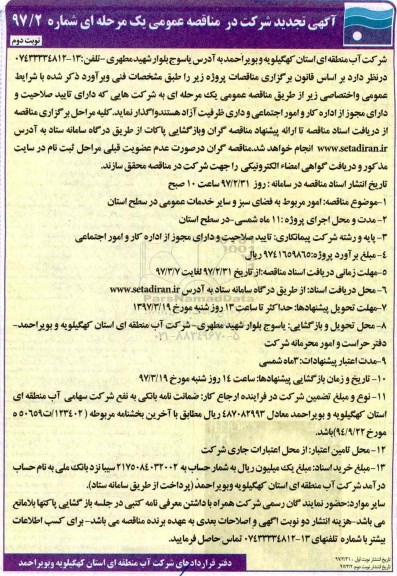 آگهی تجدید شرکت در مناقصه عمومی یک مرحله ای شماره ۹۷/۲
نوبت دوم
شرکت آب منطقه ای استان کهگیلویه و بویراحمد به آدرس یاسوج بلوار شهید مطهری -تلفن: ۱۳-۰۷۴۳۳۳۳۴۸۱۲
درنظر دارد بر اساس قانون برگزاری مناقصات پروژه زیر را طبق مشخصات فنی وبرآورد ذکر شده با شرایط
عمومی واختصاصی زیر از طریق مناقصه عمومی یک مرحله ای به شرکت هایی که دارای تایید صلاحیت و
دارای مجوز از اداره کار و امور اجتماعی و داری ظرفیت آزاد هستند واگذار نماید. کلیه مراحل برگزاری مناقصه
از دریافت اسناد مناقصه تا ارائه پیشنهاد مناقصه گران وبازگشایی پاکات از طریق درگاه سامانه ستاد به آدرس
www.setadiran.ir انجام خواهد شد. مناقصه گران درصورت عدم عضویت قبلی مراحل ثبت نام در سایت
مذکور و دریافت گواهی امضاء الکترونیکی را جهت شرکت در مناقصه محقق سازند.
تاریخ انتشار اسناد مناقصه در سامانه : روز ۹۷/۲/۳۱ ساعت ۱۰ صبح
۱-موضوع مناقصه: امور مربوط به فضای سبز و سایر خدمات عمومی در سطح استان
۲- مدت و محل اجرای پروژه : ۱۱ ماه شمسی-در سطح استان
۳- پایه و رشته شرکت پیمانکاری: تایید صلاحیت و دارای مجوز از اداره کار و امور اجتماعی
۴- مبلغ برآورد پروژه: ۹۷۴۱۶۵۹۸۶۵ ریال
۵-مهلت زمانی دریافت اسناد مناقصه: از تاریخ ۹۷/۲/۳۱ لغایت ۹۷/۳/۷
۶-محل دریافت اسناد: از طریق درگاه سامانه ستاد به آدرس www.setadiran.ir
۷-مهلت تحویل پیشنهادها: حداکثر تا ساعت ۱۳ روز شنبه مورخ ۱۳۹۷/۳/۱۹
۸- محل تحویل و بازگشایی: یاسوج بلوار شهید مطهری- شرکت آب منطقه ای استان کهگیلویه و بویراحمد-
دفتر حراست و امور محرمانه شرکت
۹-مدت اعتبار پیشنهادات: ۳ماه شمسی
۱۰- تاریخ و زمان بازگشایی پیشنهادها: ساعت ۱۴ روز شنبه مورخ ۹۷/۳/۱۹
۱۱- نوع و مبلغ تضمین شرکت در فرآینده ارجاع کار: ضمانت نامه بانکی به نفع شرکت سهامی آب منطقه ای
استان کهگیلویه و بویراحمد معادل ۴۸۷۰۸۲۹۹۳ ریال مطابق با آخرین بخشنامه مربوطه (۱۲۳۴۰۲/ت۵۰۶۵۹ ه
مورخ ۹۴/۹/۲۲)باشد.
۱۲-محل تامین اعتبار: از محل اعتبارات جاری شرکت
۱۳-مبلغ خرید اسناد: مبلغ یک میلیون ریال به شمار حساب به ۲۱۷۵۰۸۴۰۳۲۰۰۲ سیبا نزد بانک ملی به نام حساب
درآمد شرکت آب منطقه ای استان کهگیلویه وبویرحمد (پرداخت از طریق سامانه ستاد).
سایر موارد: حضور نمایند گان رسمی شرکت همراه با داشتن معرفی نامه کتبی در جلسه باز گشایی پاکتها بلامانع
می باشد- هزینه انتشار دو نوبت اگهی و اصلاحات بعدی به عهده برنده مناقصه می باشد- برای کسب اطلاعات
بیشتر با شماره تلفنهای ۱۳-۰۷۴۳۳۳۳۴۸۱۲ تماس حاصل فرمایید.
تاریخ انتشار نوبت اول: ۹۷/۲/۳۱
تاریخ انتشار نوبت دوم: ۹۷/۳/۲
دفتر قراردادهای شرکت آب منطقه ای استان کهگیلویه وبویراحمد
ParsNamadData
۰۲۱-۸۸۳۴۹۶۷۰-۵